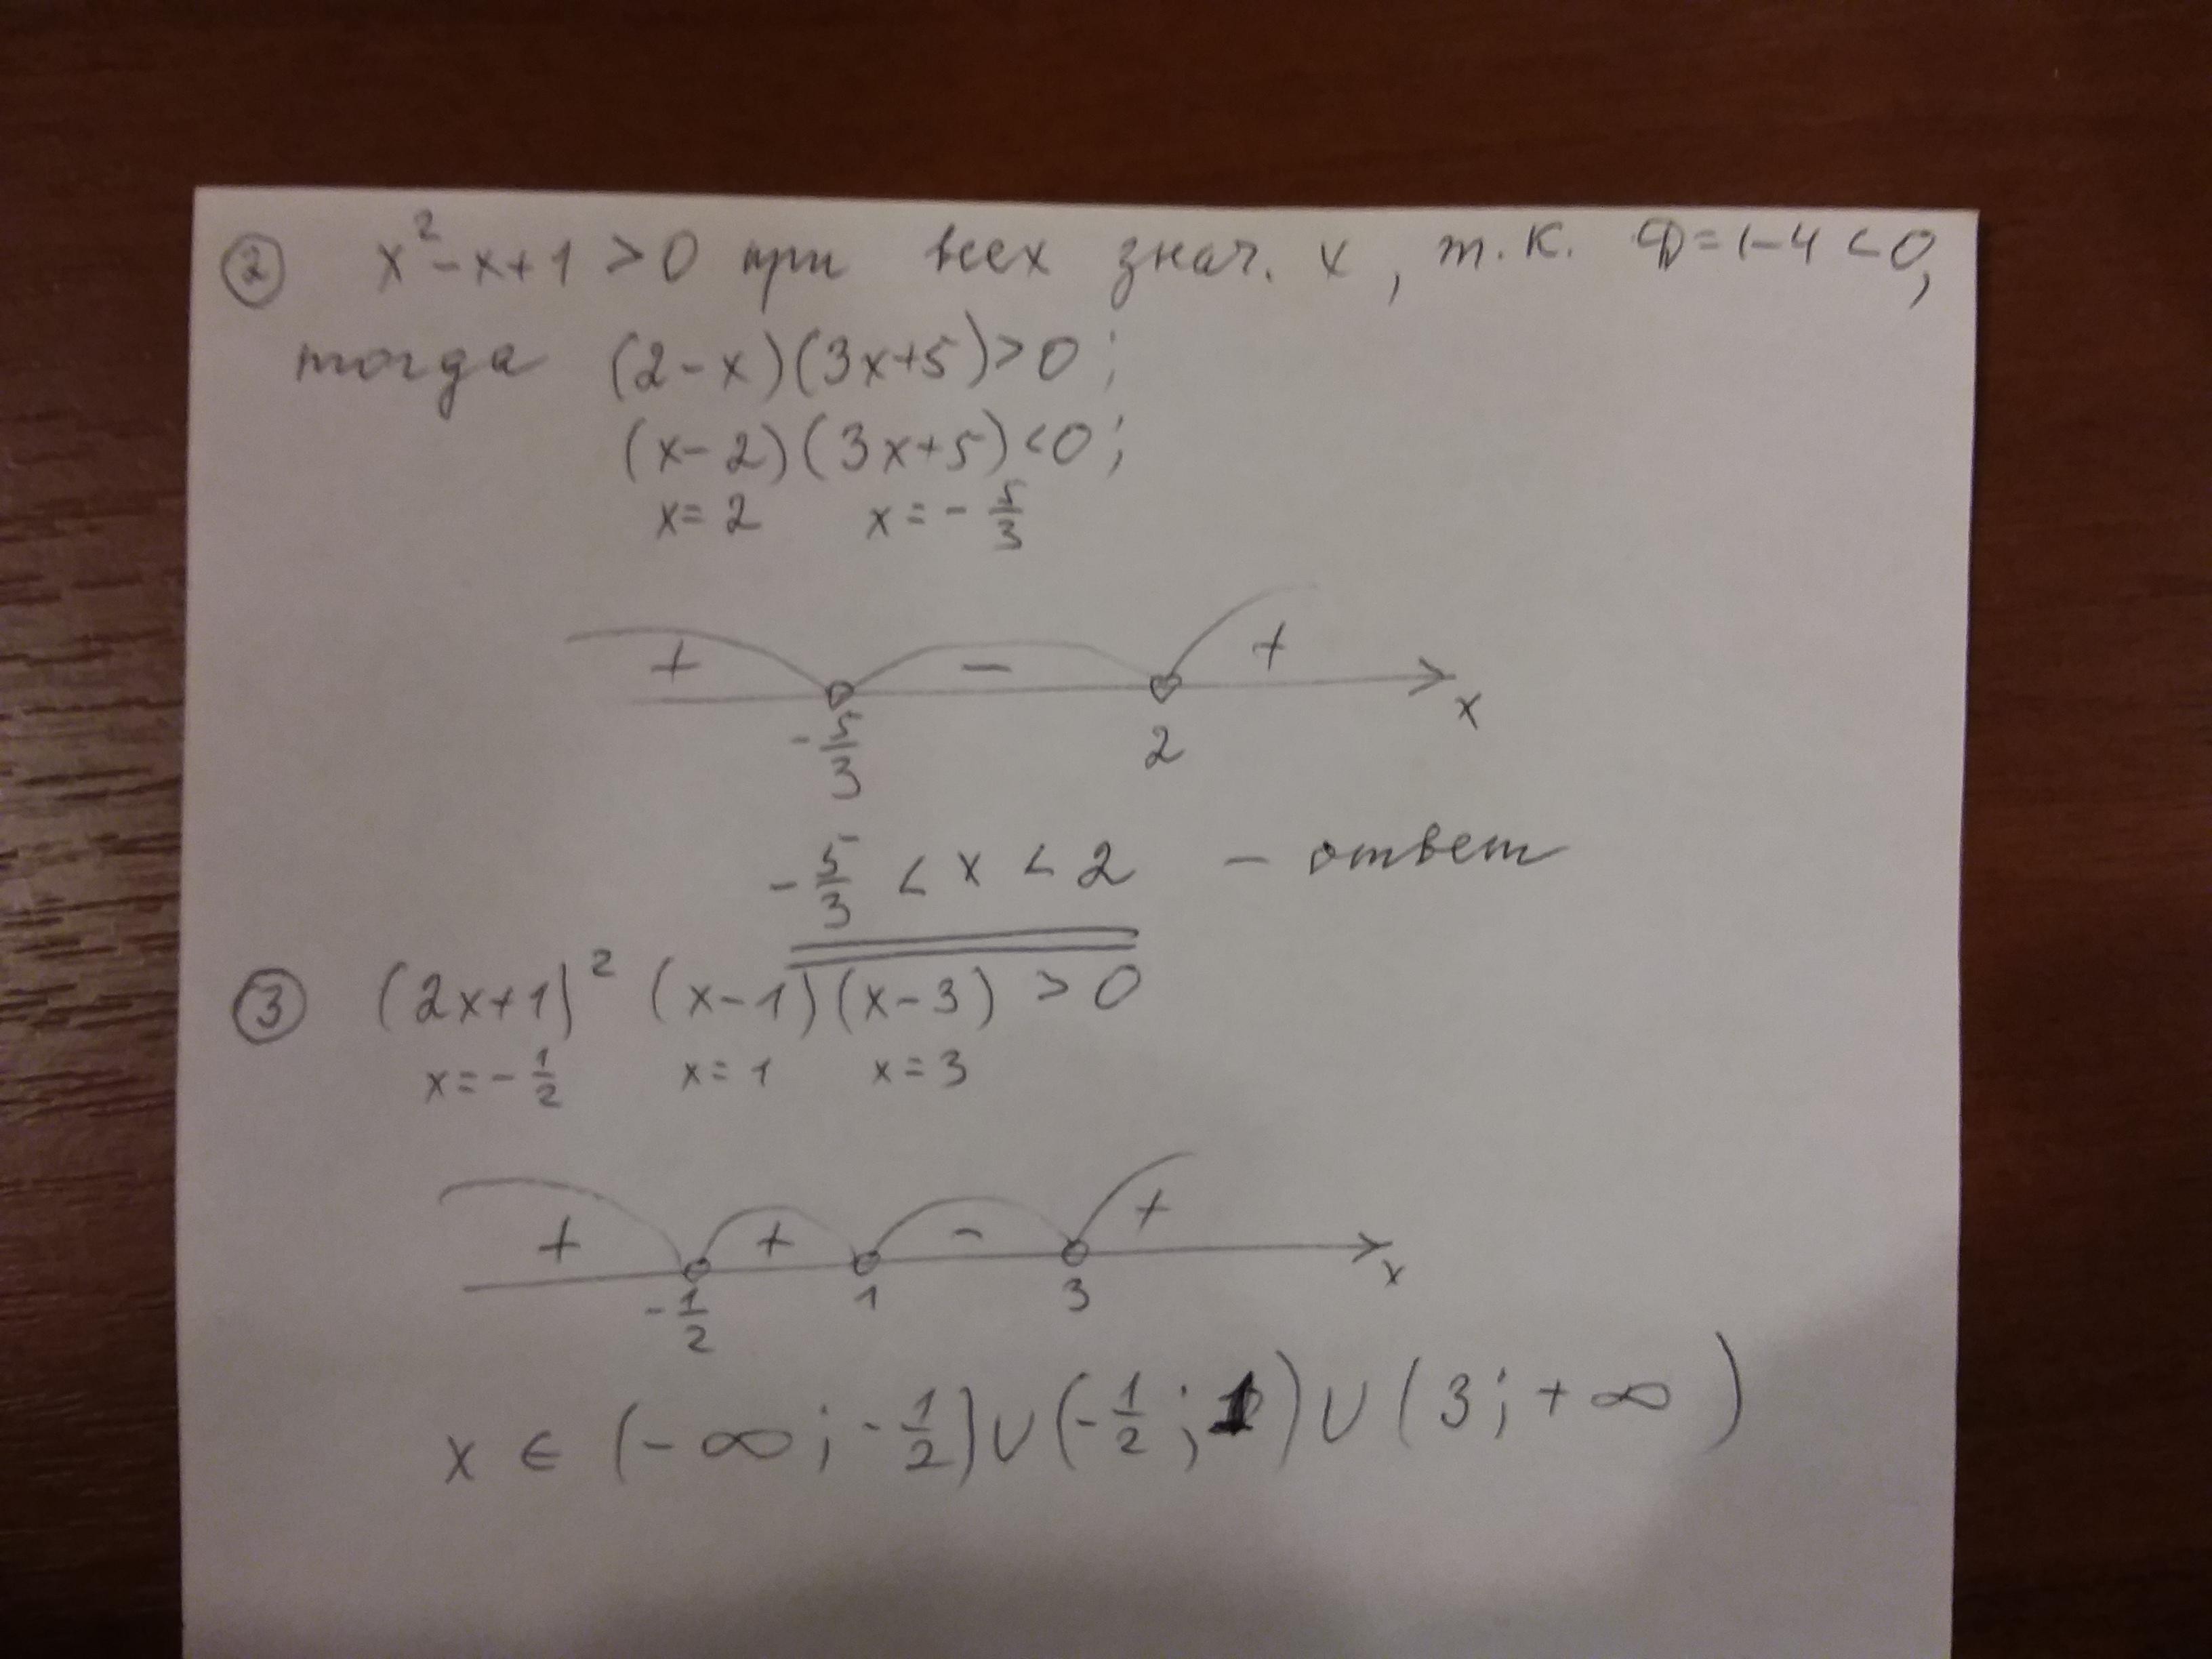 ② x²-x+1 >0 при всех знач. x, т.к. D=1-4<0,
тогда (2-x)(3x+5)>0;
(x-2)(3x+5)<0;
x=2 x=-5/3
+ - +
-5/3 2 x
-5/3 < x < 2 - ответ
③ (2x+1)² (x-1)(x-3) >0
x=-1/2 x=1 x=3
+ + - +
-1/2 1 3 x
x ∈ (-∞; -1/2)∪(-1/2; 1)∪(3; +∞)